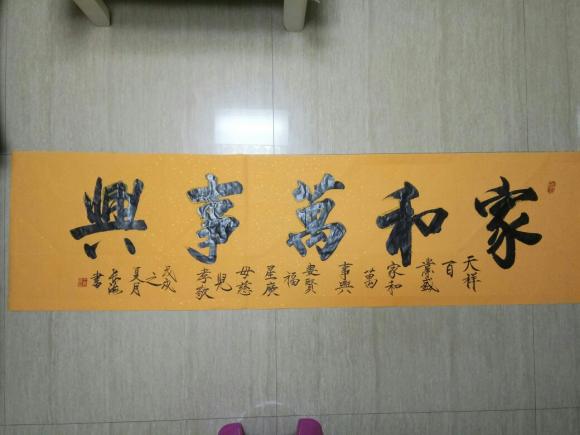 家和萬事興
天祥
百
業盛
家和
萬
事興
妻賢
福
星
母慈
兒
孝敬
戊戌
之
夏月
海
書